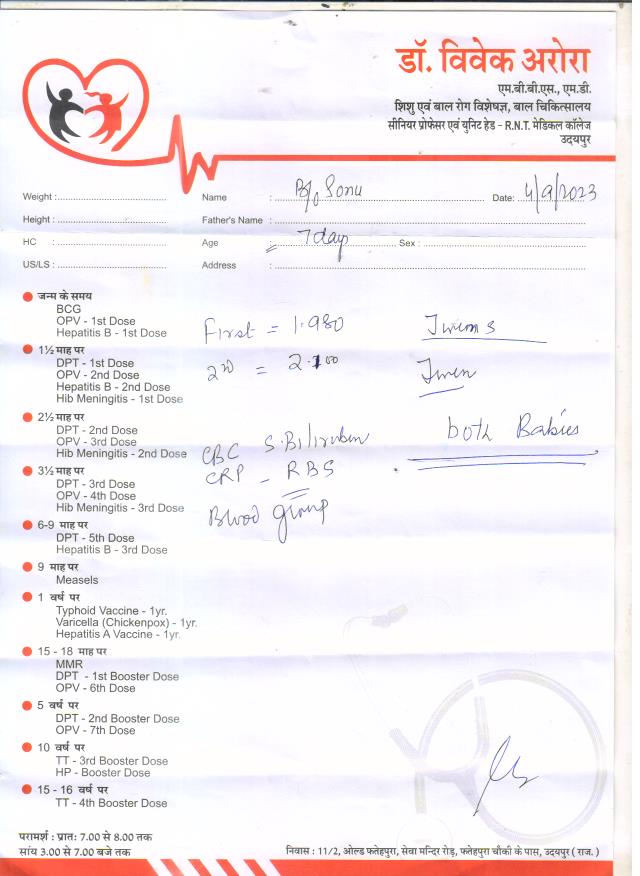 डॉ. विवेक अरोरा
एम.बी.बी.एस., एम.डी.
शिशु एवं बाल रोग विशेषज्ञ, बाल चिकित्सालय
सीनियर प्रोफेसर एवं युनिट हेड - R.N.T. मेडिकल कॉलेज
उदयपुर
Weight : Name : B/o Sonu Date: 4/9/2023
Height : Father's Name :
HC : Age : 7 days Sex :
US/LS : Address :
जन्म के समय
BCG
OPV - 1st Dose
Hepatitis B - 1st Dose
First = 1.980 Twins
1½ माह पर
DPT - 1st Dose
OPV - 2nd Dose
Hepatitis B - 2nd Dose
Hib Meningitis - 1st Dose
2nd = 2.100 Twen
2½ माह पर
DPT - 2nd Dose
OPV - 3rd Dose
Hib Meningitis - 2nd Dose
CBC S.Biliruben both Babies
3½ माह पर
DPT - 3rd Dose
OPV - 4th Dose
Hib Meningitis - 3rd Dose
CRP - RBS
Blood group
6-9 माह पर
DPT - 5th Dose
Hepatitis B - 3rd Dose
9 माह पर
Measels
1 वर्ष पर
Typhoid Vaccine - 1yr.
Varicella (Chickenpox) - 1yr.
Hepatitis A Vaccine - 1yr.
15 - 18 माह पर
MMR
DPT - 1st Booster Dose
OPV - 6th Dose
5 वर्ष पर
DPT - 2nd Booster Dose
OPV - 7th Dose
10 वर्ष पर
TT - 3rd Booster Dose
HP - Booster Dose
15 - 16 वर्ष पर
TT - 4th Booster Dose
परामर्श : प्रातः 7.00 से 8.00 तक
सांय 3.00 से 7.00 बजे तक
निवास : 11/2, ओल्ड फतेहपुरा, सेवा मन्दिर रोड़, फतेहपुरा चौकी के पास, उदयपुर ( राज. )